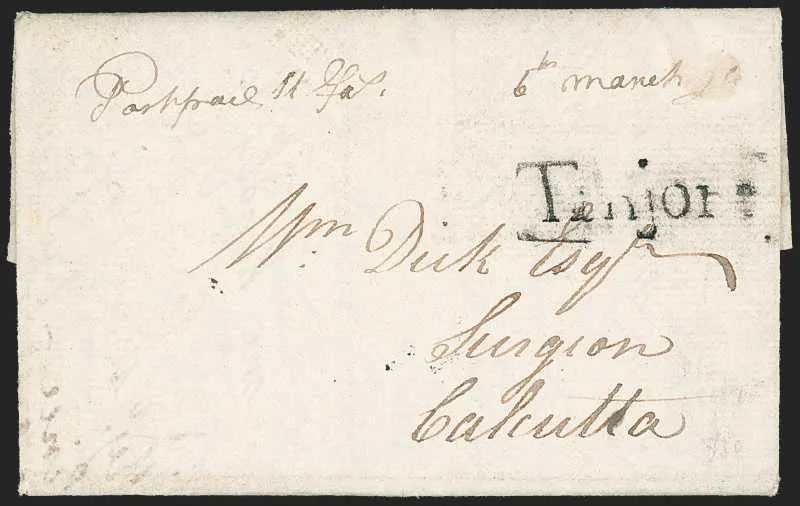 Postpaid 11 fas.
6th march
Tanjore
Wm Dick Esqr
Surgeon
Calcutta